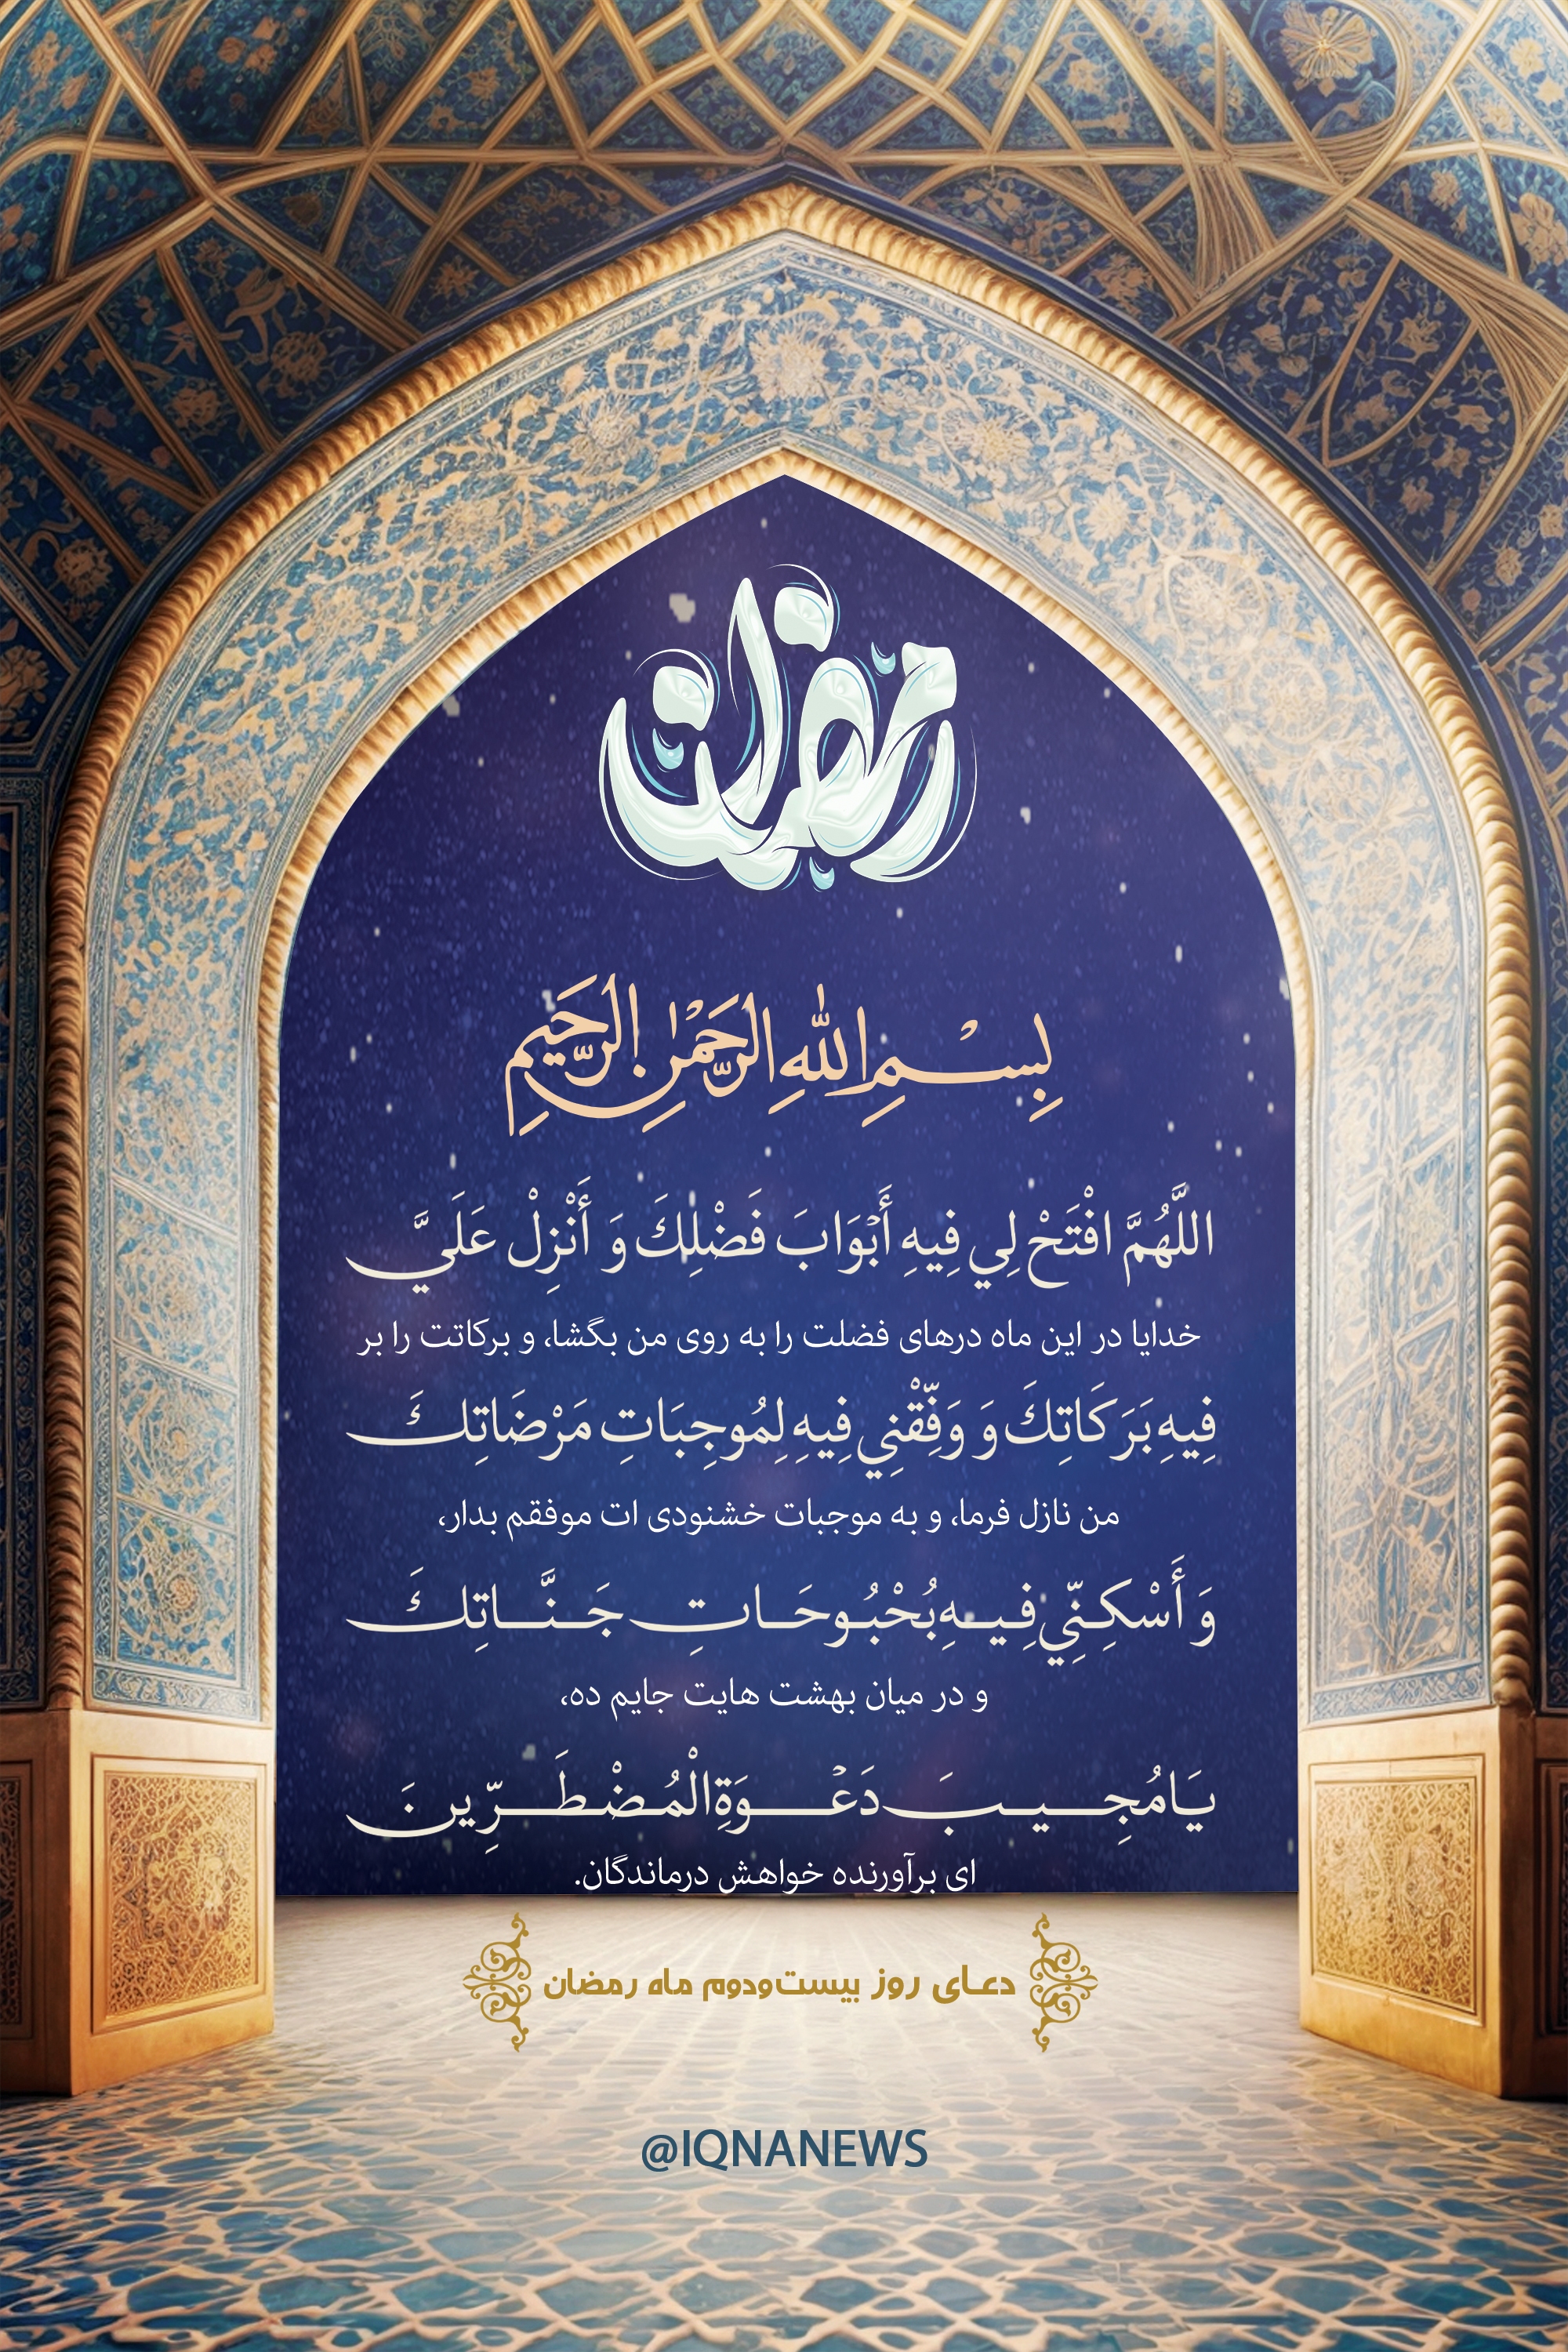 رمضان
بِسْمِ اللهِ الرَّحْمٰنِ الرَّحِيمِ
اللَّهُمَّ افْتَحْ لِي فِيهِ أَبْوَابَ فَضْلِكَ وَ أَنْزِلْ عَلَيَّ
خدایا در این ماه درهای فضلت را به روی من بگشا، و برکاتت را بر
فِيهِ بَرَكَاتِكَ وَ وَفِّقْنِي فِيهِ لِمُوجِبَاتِ مَرْضَاتِكَ
من نازل فرما، و به موجبات خشنودی ات موفقم بدار،
وَ أَسْكِنِّي فِيهِ بُحْبُوحَاتِ جَنَّاتِكَ
و در میان بهشت هایت جایم ده،
يَا مُجِيبَ دَعْوَةِ الْمُضْطَرِّينَ
ای برآورنده خواهش درماندگان.
دعای روز بیست‌ودوم ماه رمضان
@IQNANEWS